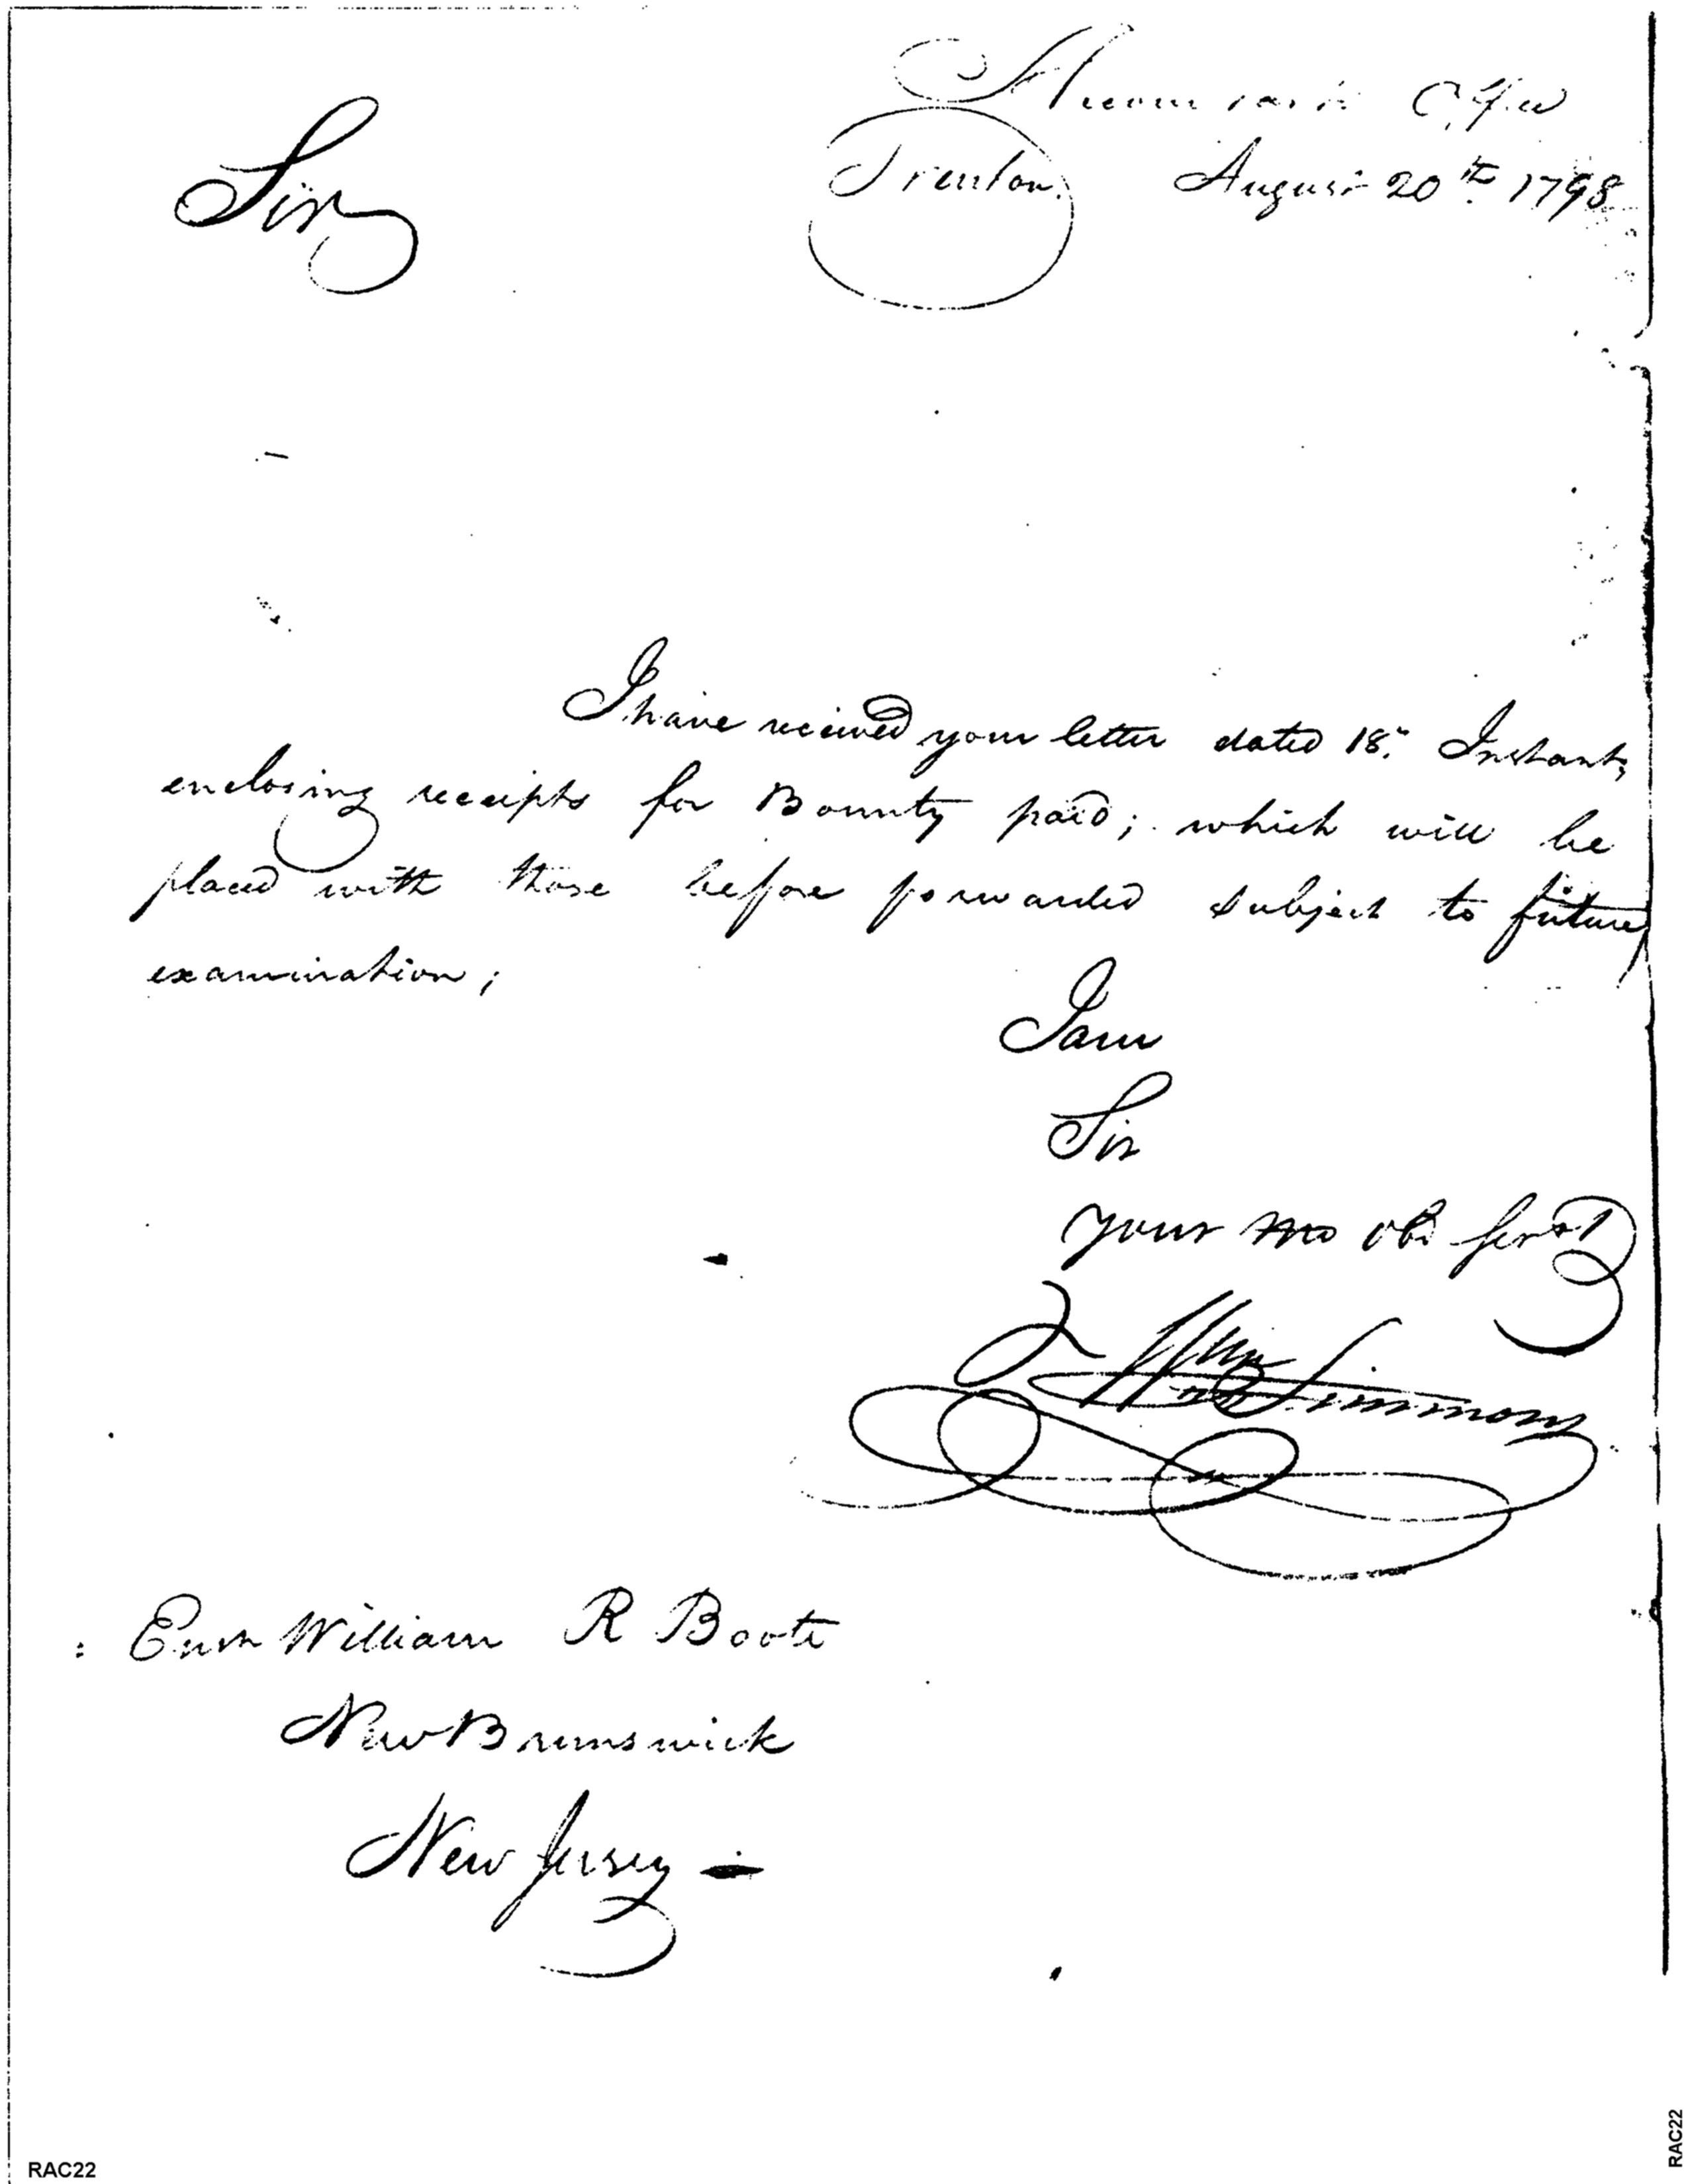 Accountants Office
Trenton. August 20th 1798
Sir
I have received your letter dated 18th Instant,
enclosing receipts for Bounty paid; which will be
placed with those before forwarded subject to future
examination;
I am
Sir
your mo ob servt
Wm Simmons
Ensn William R Boote
New Brunswick
New Jersey
RAC22
RAC22